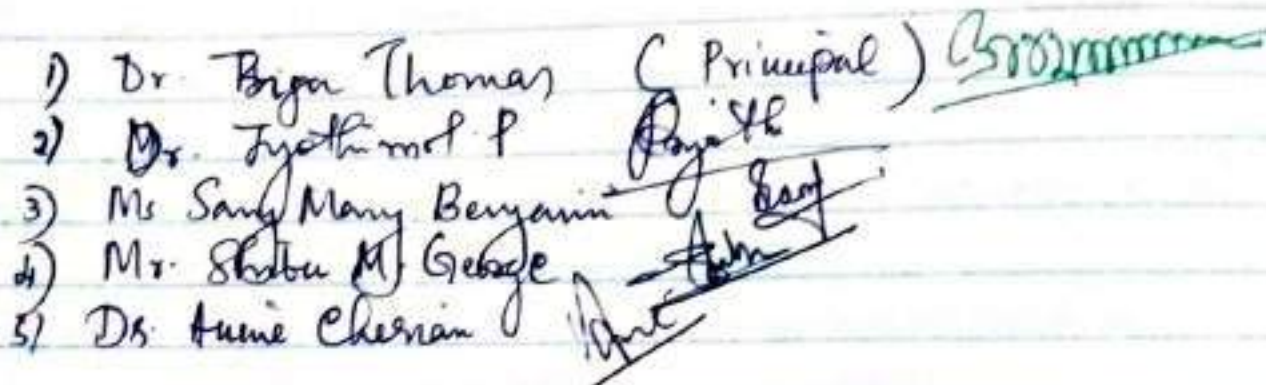 1) Dr. Biju Thomas (Principal)
2) Dr. Jyothimol P
3) Ms Sany Mary Benjamin
4) Mr. Shibu M George
5) Dr. Annie Cherian